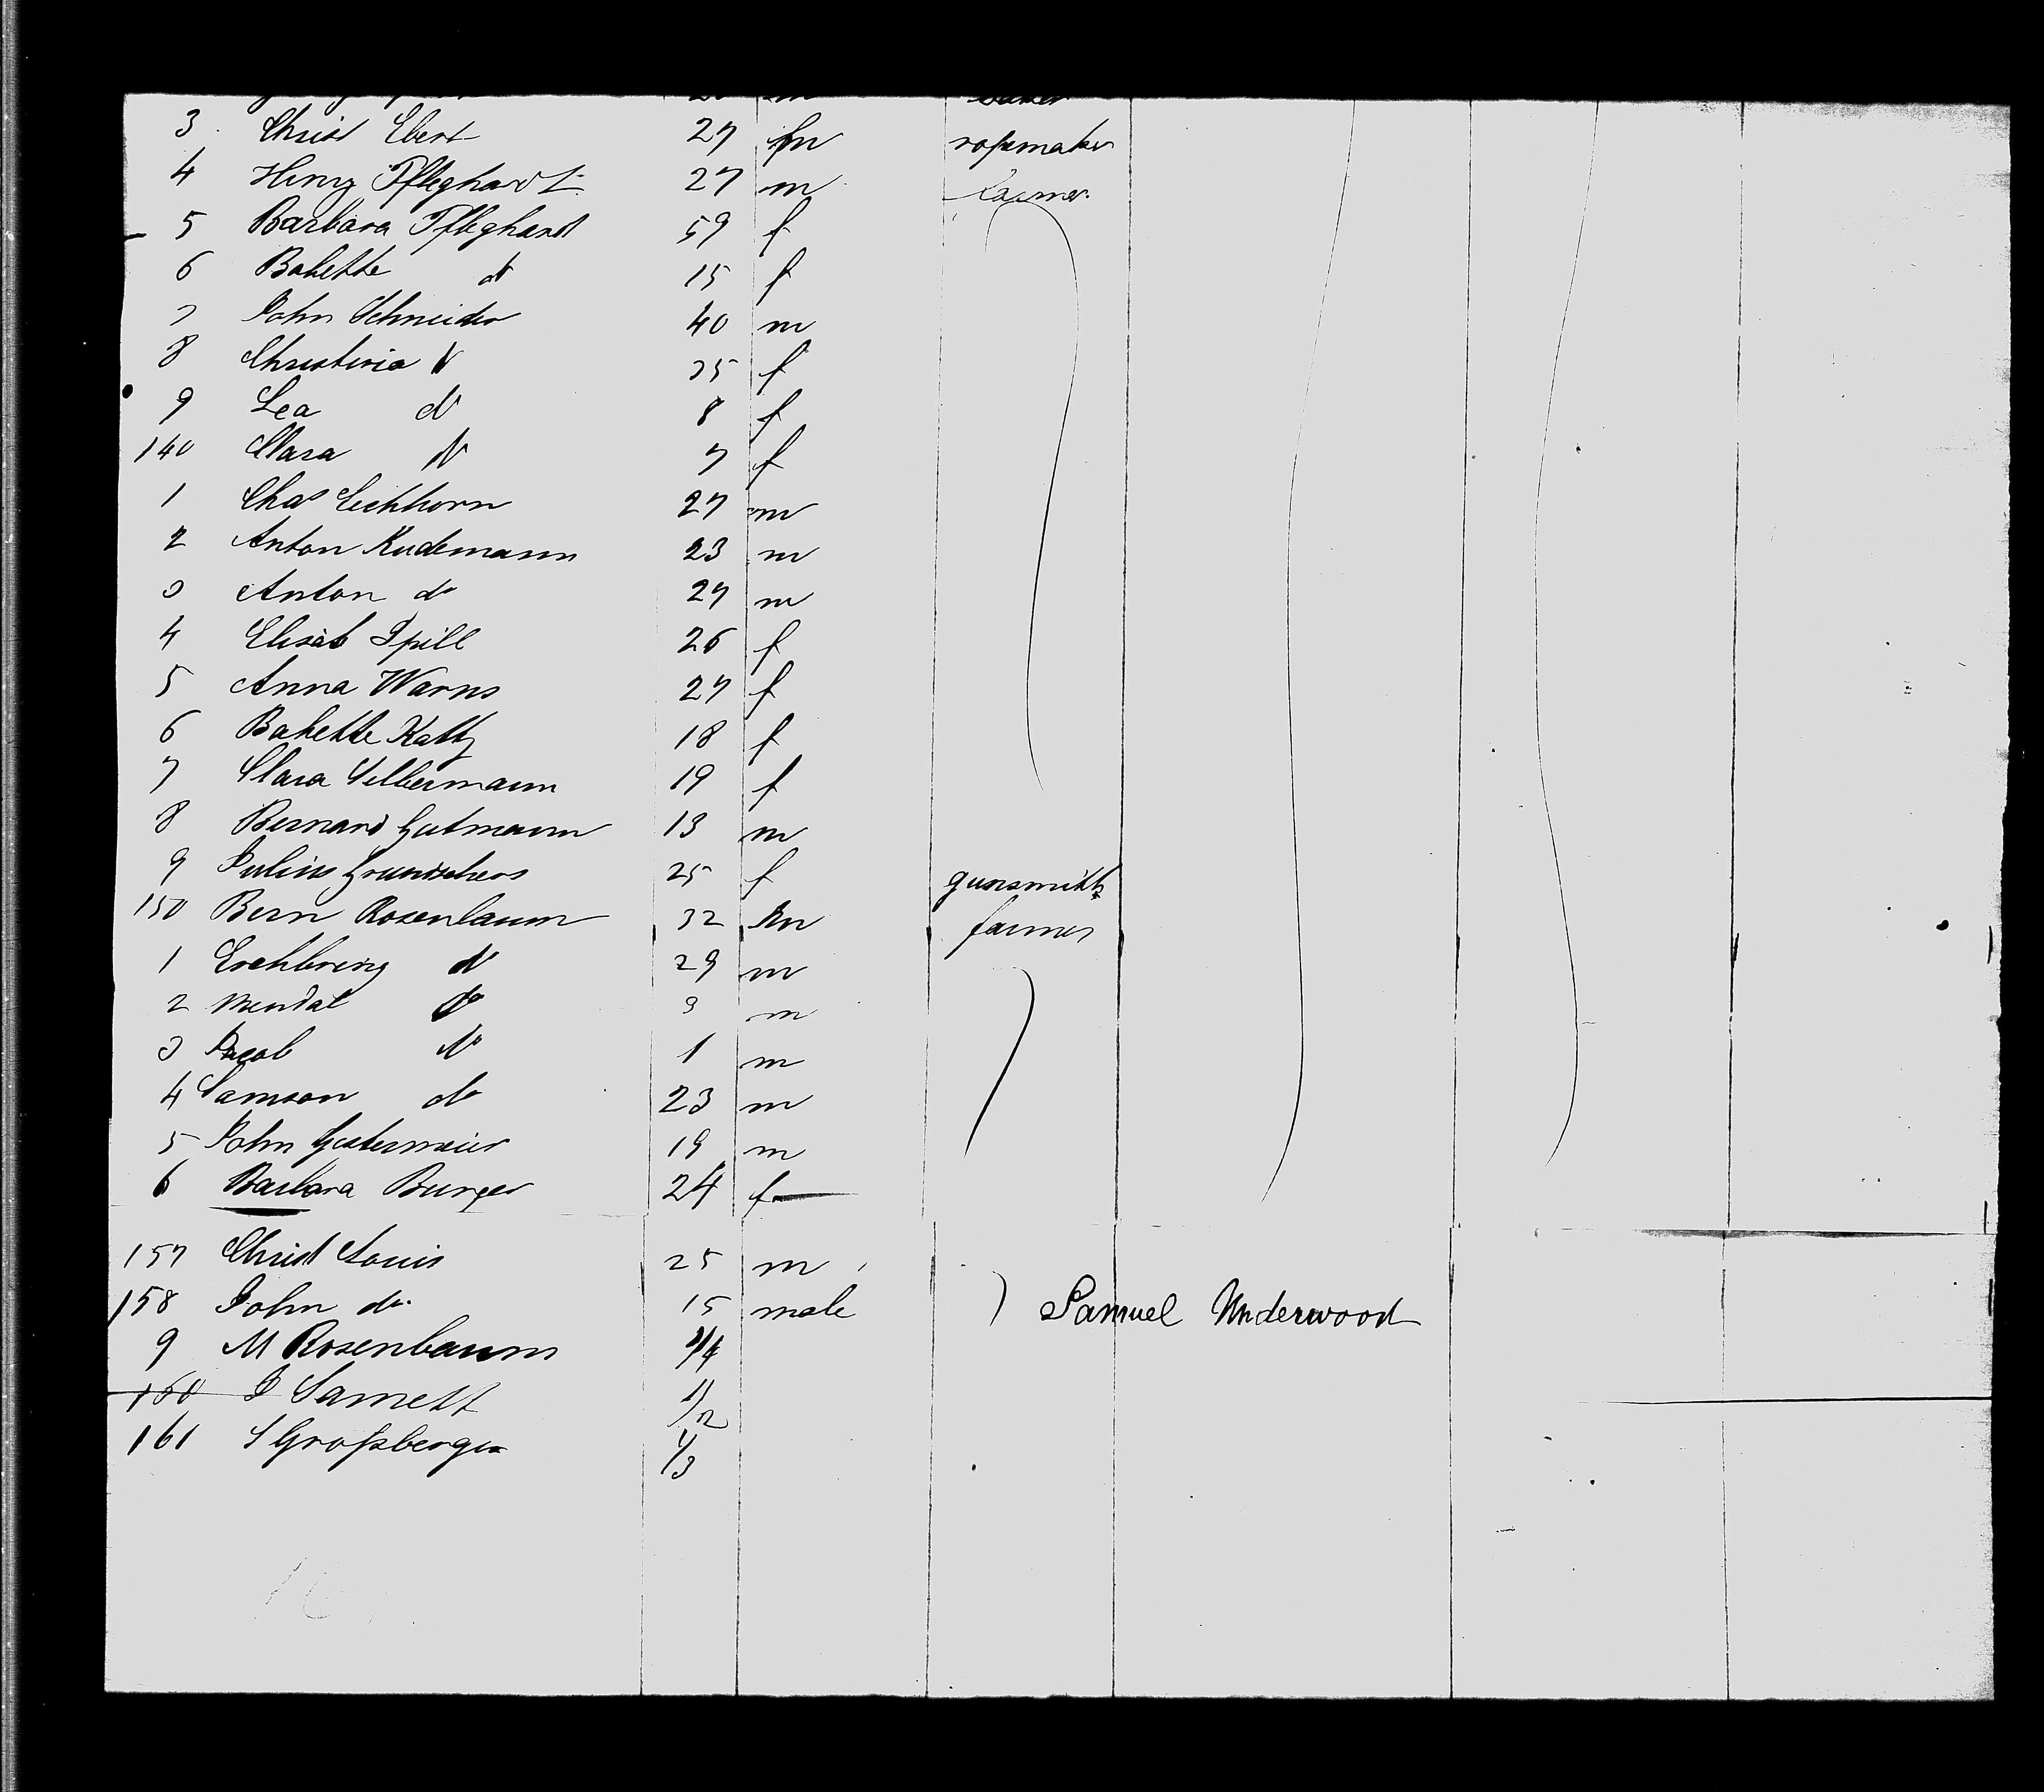 3 Christ Ebert 27 m ropemaker
4 Henry Pfleghardt 27 m farmer
5 Barbara Pfleghardt 59 f
6 Babette do 15 f
7 John Schneider 40 m
8 Christina do 35 f
9 Lea do 8 f
140 Clara do 7 f
1 Chas Eichhorn 27 m
2 Anton Rudemann 23 m
3 Anton do 27 m
4 Elisab Spill 26 f
5 Anna Warns 27 f
6 Babette Katz 18 f
7 Clara Silbermann 19 f
8 Bernard Gutmann 13 m
9 Julius 25 f gunsmith
150 Bern Rosenbaum 32 m farmer
1 do 29 m
2 Mendal do 3 m
3 Jacob do 1 m
4 Samson do 23 m
5 John Gestermeier 19 m
6 Barbara Burger 24 f
157 Christ Louis 25 m
158 John do 15 male Samuel Underwood
9 M Rosenbaum 1/4
160 J Samett 1/12
161 S Großberger 1/3